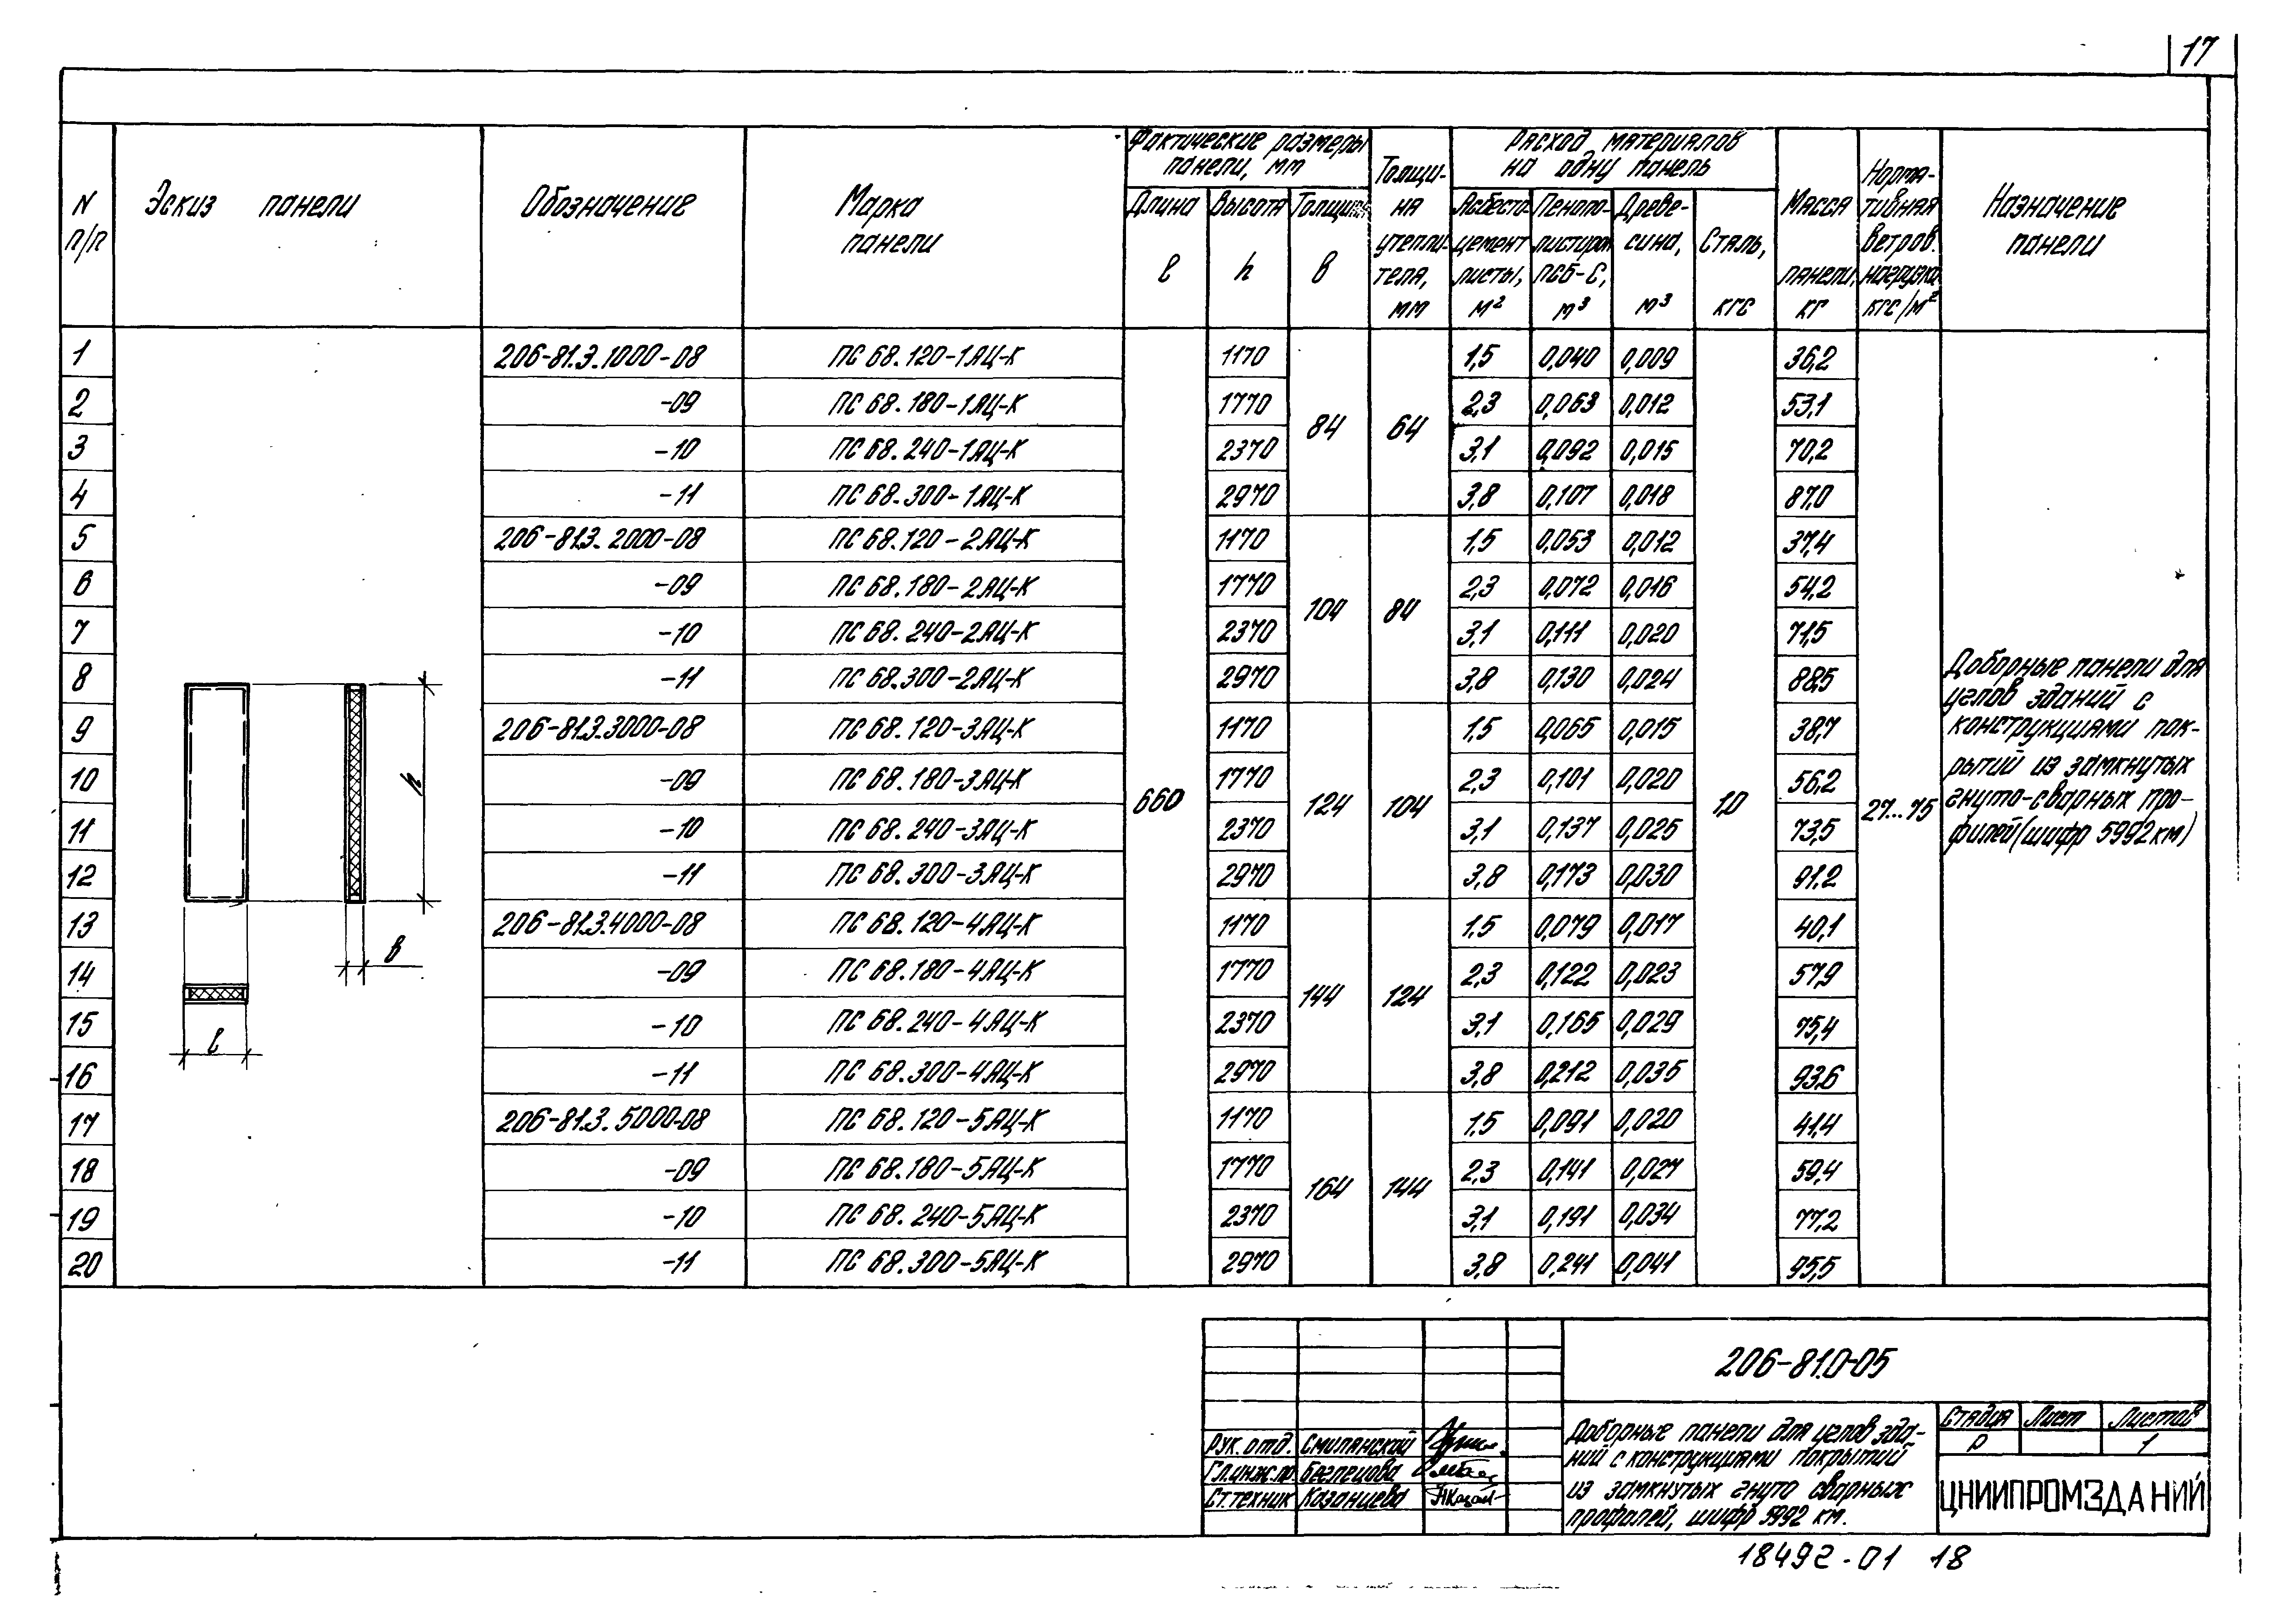 17
N п/п
Эскиз панели
Обозначение
Марка панели
Фактические размеры панели, мм
Длина l
Высота h
Толщина в
Толщина утеплителя, мм
Расход материалов на одну панель
Асбестоцемент листы, м²
Пенополистирол ПСБ-С, м³
Древесина, м³
Сталь, кгс
Масса панели, кг
Нормативная ветров. нагрузка кгс/м²
Назначение панели
1 206-81.3.1000-08 ПС 68.120-1АЦ-К 1170 1,5 0,040 0,009 36,2
2 -09 ПС 68.180-1АЦ-К 1770 2,3 0,063 0,012 53,1
84 64
3 -10 ПС 68.240-1АЦ-К 2370 3,1 0,092 0,015 70,2
4 -11 ПС 68.300-1АЦ-К 2970 3,8 0,107 0,018 87,0
5 206-81.3.2000-08 ПС 68.120-2АЦ-К 1170 1,5 0,053 0,012 37,4
6 -09 ПС 68.180-2АЦ-К 1770 2,3 0,072 0,016 54,2
104 84
7 -10 ПС 68.240-2АЦ-К 2370 3,1 0,111 0,020 71,5
8 -11 ПС 68.300-2АЦ-К 2970 3,8 0,130 0,024 88,5
9 206-81.3.3000-08 ПС 68.120-3АЦ-К 1170 1,5 0,065 0,015 38,7
10 -09 ПС 68.180-3АЦ-К 1770 2,3 0,101 0,020 56,2
660 124 104 1,0 27...75
11 -10 ПС 68.240-3АЦ-К 2370 3,1 0,137 0,025 73,5
12 -11 ПС 68.300-3АЦ-К 2970 3,8 0,173 0,030 91,2
13 206-81.3.4000-08 ПС 68.120-4АЦ-К 1170 1,5 0,079 0,017 40,1
14 -09 ПС 68.180-4АЦ-К 1770 2,3 0,122 0,023 57,9
144 124
15 -10 ПС 68.240-4АЦ-К 2370 3,1 0,165 0,029 75,4
16 -11 ПС 68.300-4АЦ-К 2970 3,8 0,212 0,035 93,6
17 206-81.3.5000-08 ПС 68.120-5АЦ-К 1170 1,5 0,091 0,020 41,4
18 -09 ПС 68.180-5АЦ-К 1770 2,3 0,141 0,027 59,4
164 144
19 -10 ПС 68.240-5АЦ-К 2370 3,1 0,191 0,034 77,2
20 -11 ПС 68.300-5АЦ-К 2970 3,8 0,241 0,041 95,5
h
в
l
Доборные панели для
углов зданий с
конструкциями пок-
рытий из замкнутых
гнуто-сварных про-
филей (шифр 5992км)
206-81.0-05
Рук. отд. Смилянский
Гл.инж.пр.
Ст.техник Казанцева
Доборные панели для углов зда-
ний с конструкциями покрытий
из замкнутых гнуто сварных
профилей, шифр 5992 км.
Стадия Лист Листов
Р 1
ЦНИИПРОМЗДАНИЙ
18492-01 18